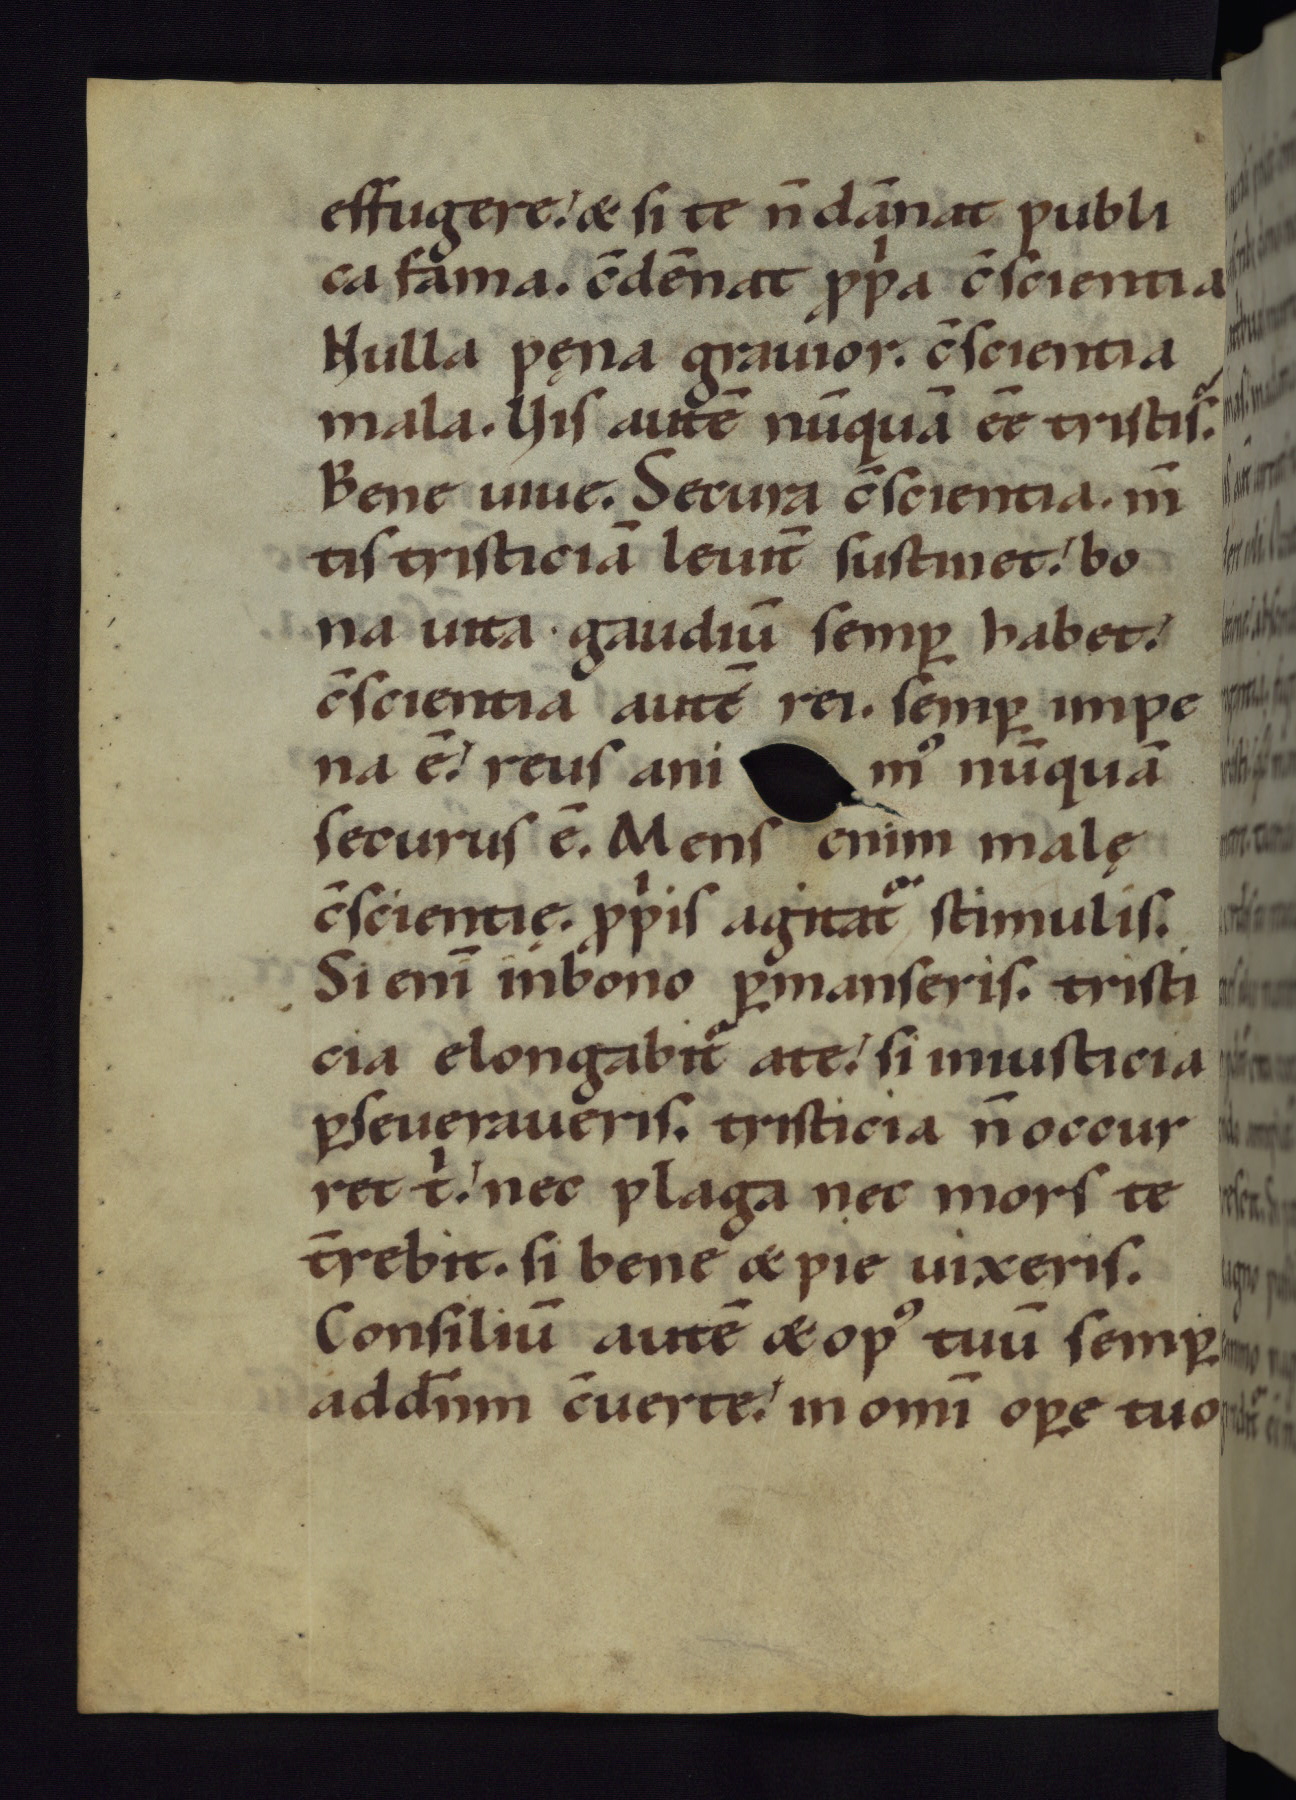 effugere. & si te n̄ dānat publi
ca fama. c̄dēnat ꝓpͥa c̄scientia
Nulla pęna grauior. c̄scientia
mala. Uis autē nūquā eē̄ tristis.
Bene uiue. Secura c̄scientia. m̄
tis tristiciā leuit̄ sustinet. bo
na uita gaudiū semꝑ habet.
c̄scientia autē rei. semꝑ inpe
na ē. reus ani mꝰ nūquā
securus ē. Mens enim malę
c̄scientię. ꝓpͥis agitat᷑ stimulis.
Si enī inbono ꝑmanseris. tristi
cia elongabit᷑ ate. si iniusticia
ꝑseueraueris. tristicia n̄ occur
ret tͥ. nec plaga nec mors te
t̄rebit. si bene & pie uixeris.
Consiliū autē & opꝰ tuū semꝑ
addn̄m c̄uerte. in omī oꝑe tuo